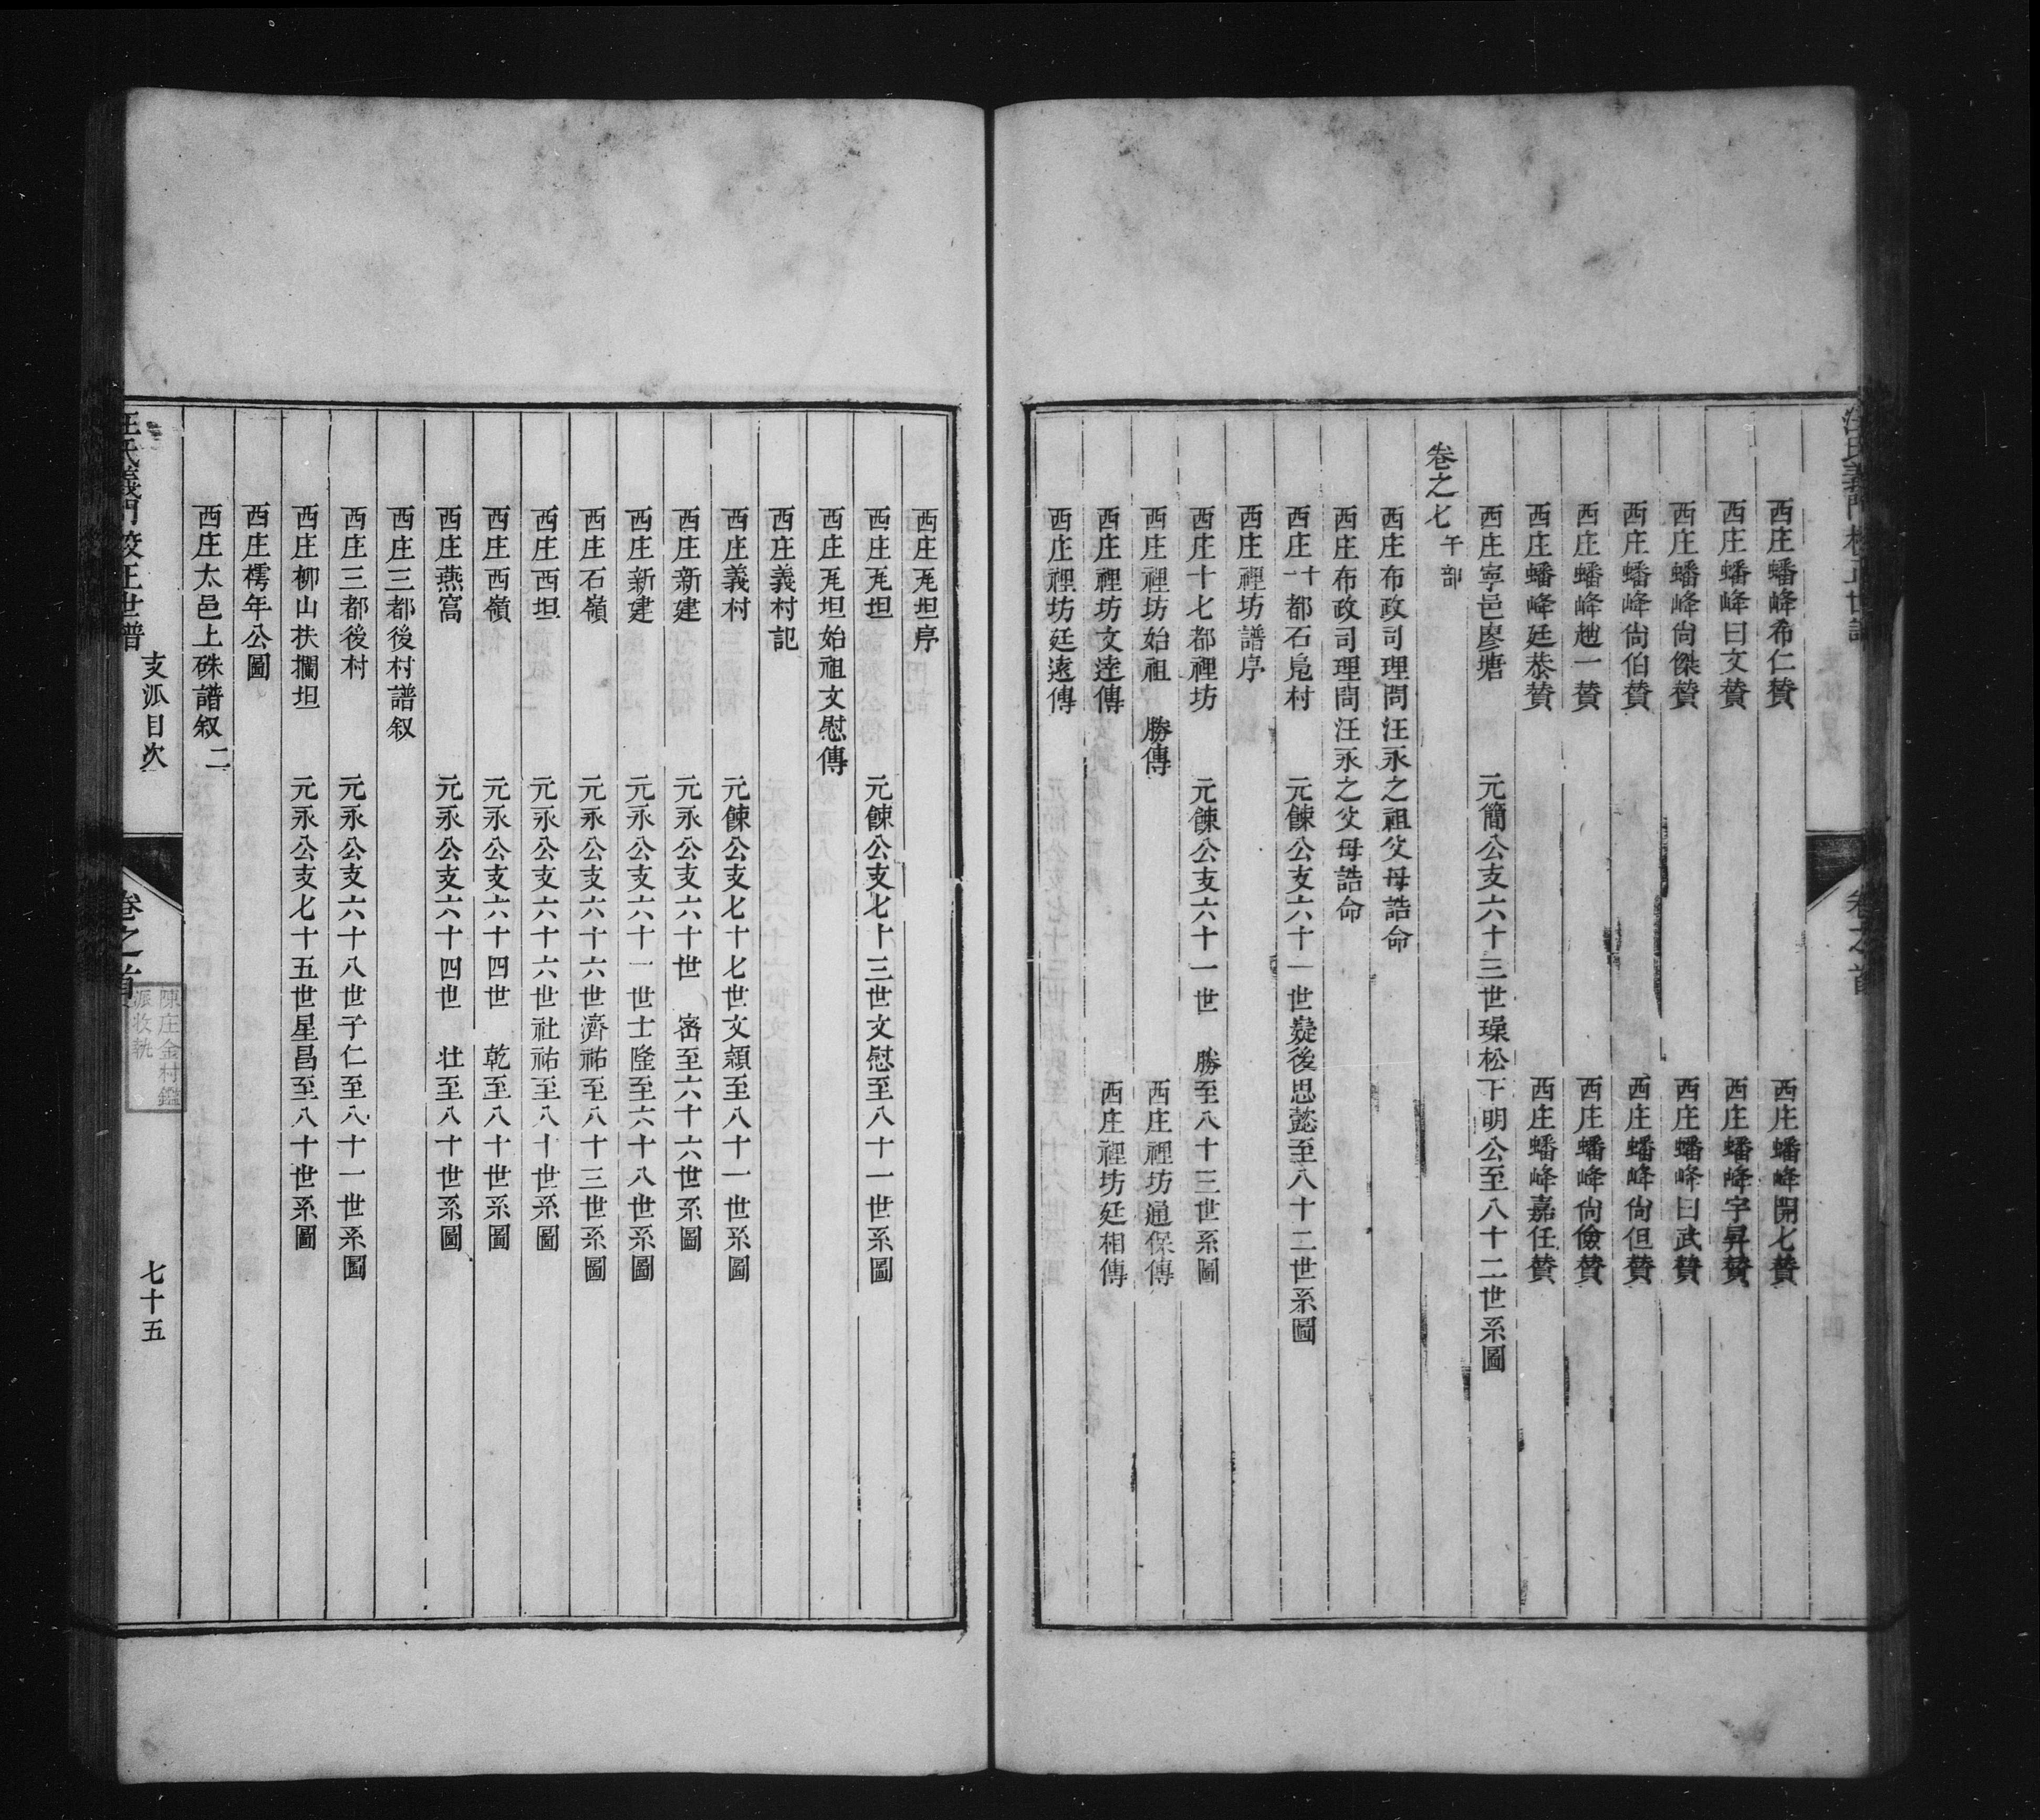 西庄蟠峰希仁贊　西庄蟠峰開七贊
西庄蟠峰曰文贊　西庄蟠峰宇昇贊
西庄蟠峰尙傑贊　西庄蟠峰曰武贊
西庄蟠峰尙伯贊　西庄蟠峰尙但贊
西庄蟠峰趙一贊　西庄蟠峰尙儉贊
西庄蟠峰廷恭贊　西庄蟠峰嘉任贊
西庄寧邑廖塘　元簡公支六十三世璪松下明公至八十二世系圖
卷之七午部
西庄布政司理問汪永之祖父母誥命
西庄布政司理問汪永之父母誥命
西庄十一都石凫村　元餗公支六十一世嶷後思懿至八十二世系圖
西庄裡坊譜序
西庄十七都裡坊　元餗公支六十一世　勝至八十三世系圖
西庄裡坊始祖　勝傳　西庄裡坊通保傳
西庄裡坊文逹傳　西庄裡坊廷相傳
西庄裡坊廷遠傳
西庄瓱坦序
西庄瓱坦　元餗公支七十三世文慰至八十一世系圖
西庄瓱坦始祖文慰傳
西庄義村記
西庄義村　元餗公支七十七世文顯至八十一世系圖
西庄新建　元永公支六十世　宻至六十六世系圖
西庄新建　元永公支六十一世士隆至六十八世系圖
西庄石嶺　元永公支六十六世濟祐至八十三世系圖
西庄西坦　元永公支六十六世社祐至八十世系圖
西庄西嶺　元永公支六十四世　乾至八十世系圖
西庄燕窩　元永公支六十四世　壮至八十世系圖
西庄三都後村譜叙
西庄三都後村　元永公支六十八世子仁至八十一世系圖
西庄柳山扶攔坦　元永公支七十五世星昌至八十世系圖
西庄樗年公圖
西庄太邑上硃譜叙二
汪氏義門校正世譜　支派目次　卷之首　七十五
陳庄金村鑑
派收執